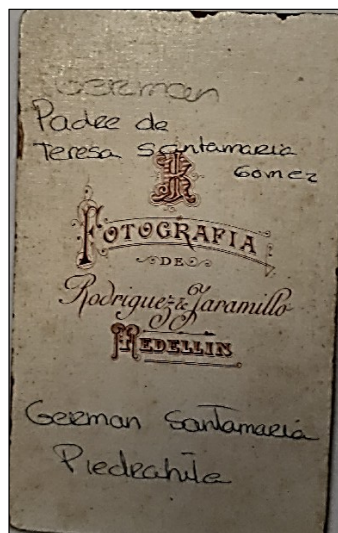 German
Padre de
Teresa Santamaria
Gomez
R
FOTOGRAFIA
DE
Rodriguez & Jaramillo
MEDELLIN
German Santamaria
Piedrahita